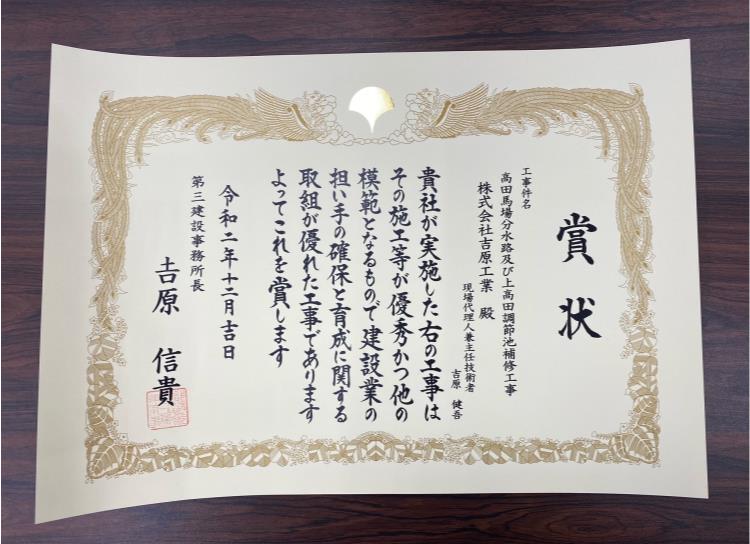 賞状
工事件名
高田馬場分水路及び上高田調節池補修工事
株式会社吉原工業 殿
現場代理人兼主任技術者
吉原 健吾
貴社が実施した右の工事は
その施工等が優秀かつ他の
模範となるもので建設業の
担い手の確保と育成に関する
取組が優れた工事であります
よってこれを賞します
令和二年十二月吉日
第三建設事務所長
吉原 信貴